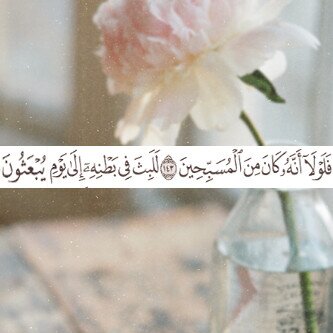 فَلَوْلَآ أَنَّهُۥ كَانَ مِنَ ٱلْمُسَبِّحِينَ ١٤٣ لَلَبِثَ فِى بَطْنِهِۦٓ إِلَىٰ يَوْمِ يُبْعَثُونَ